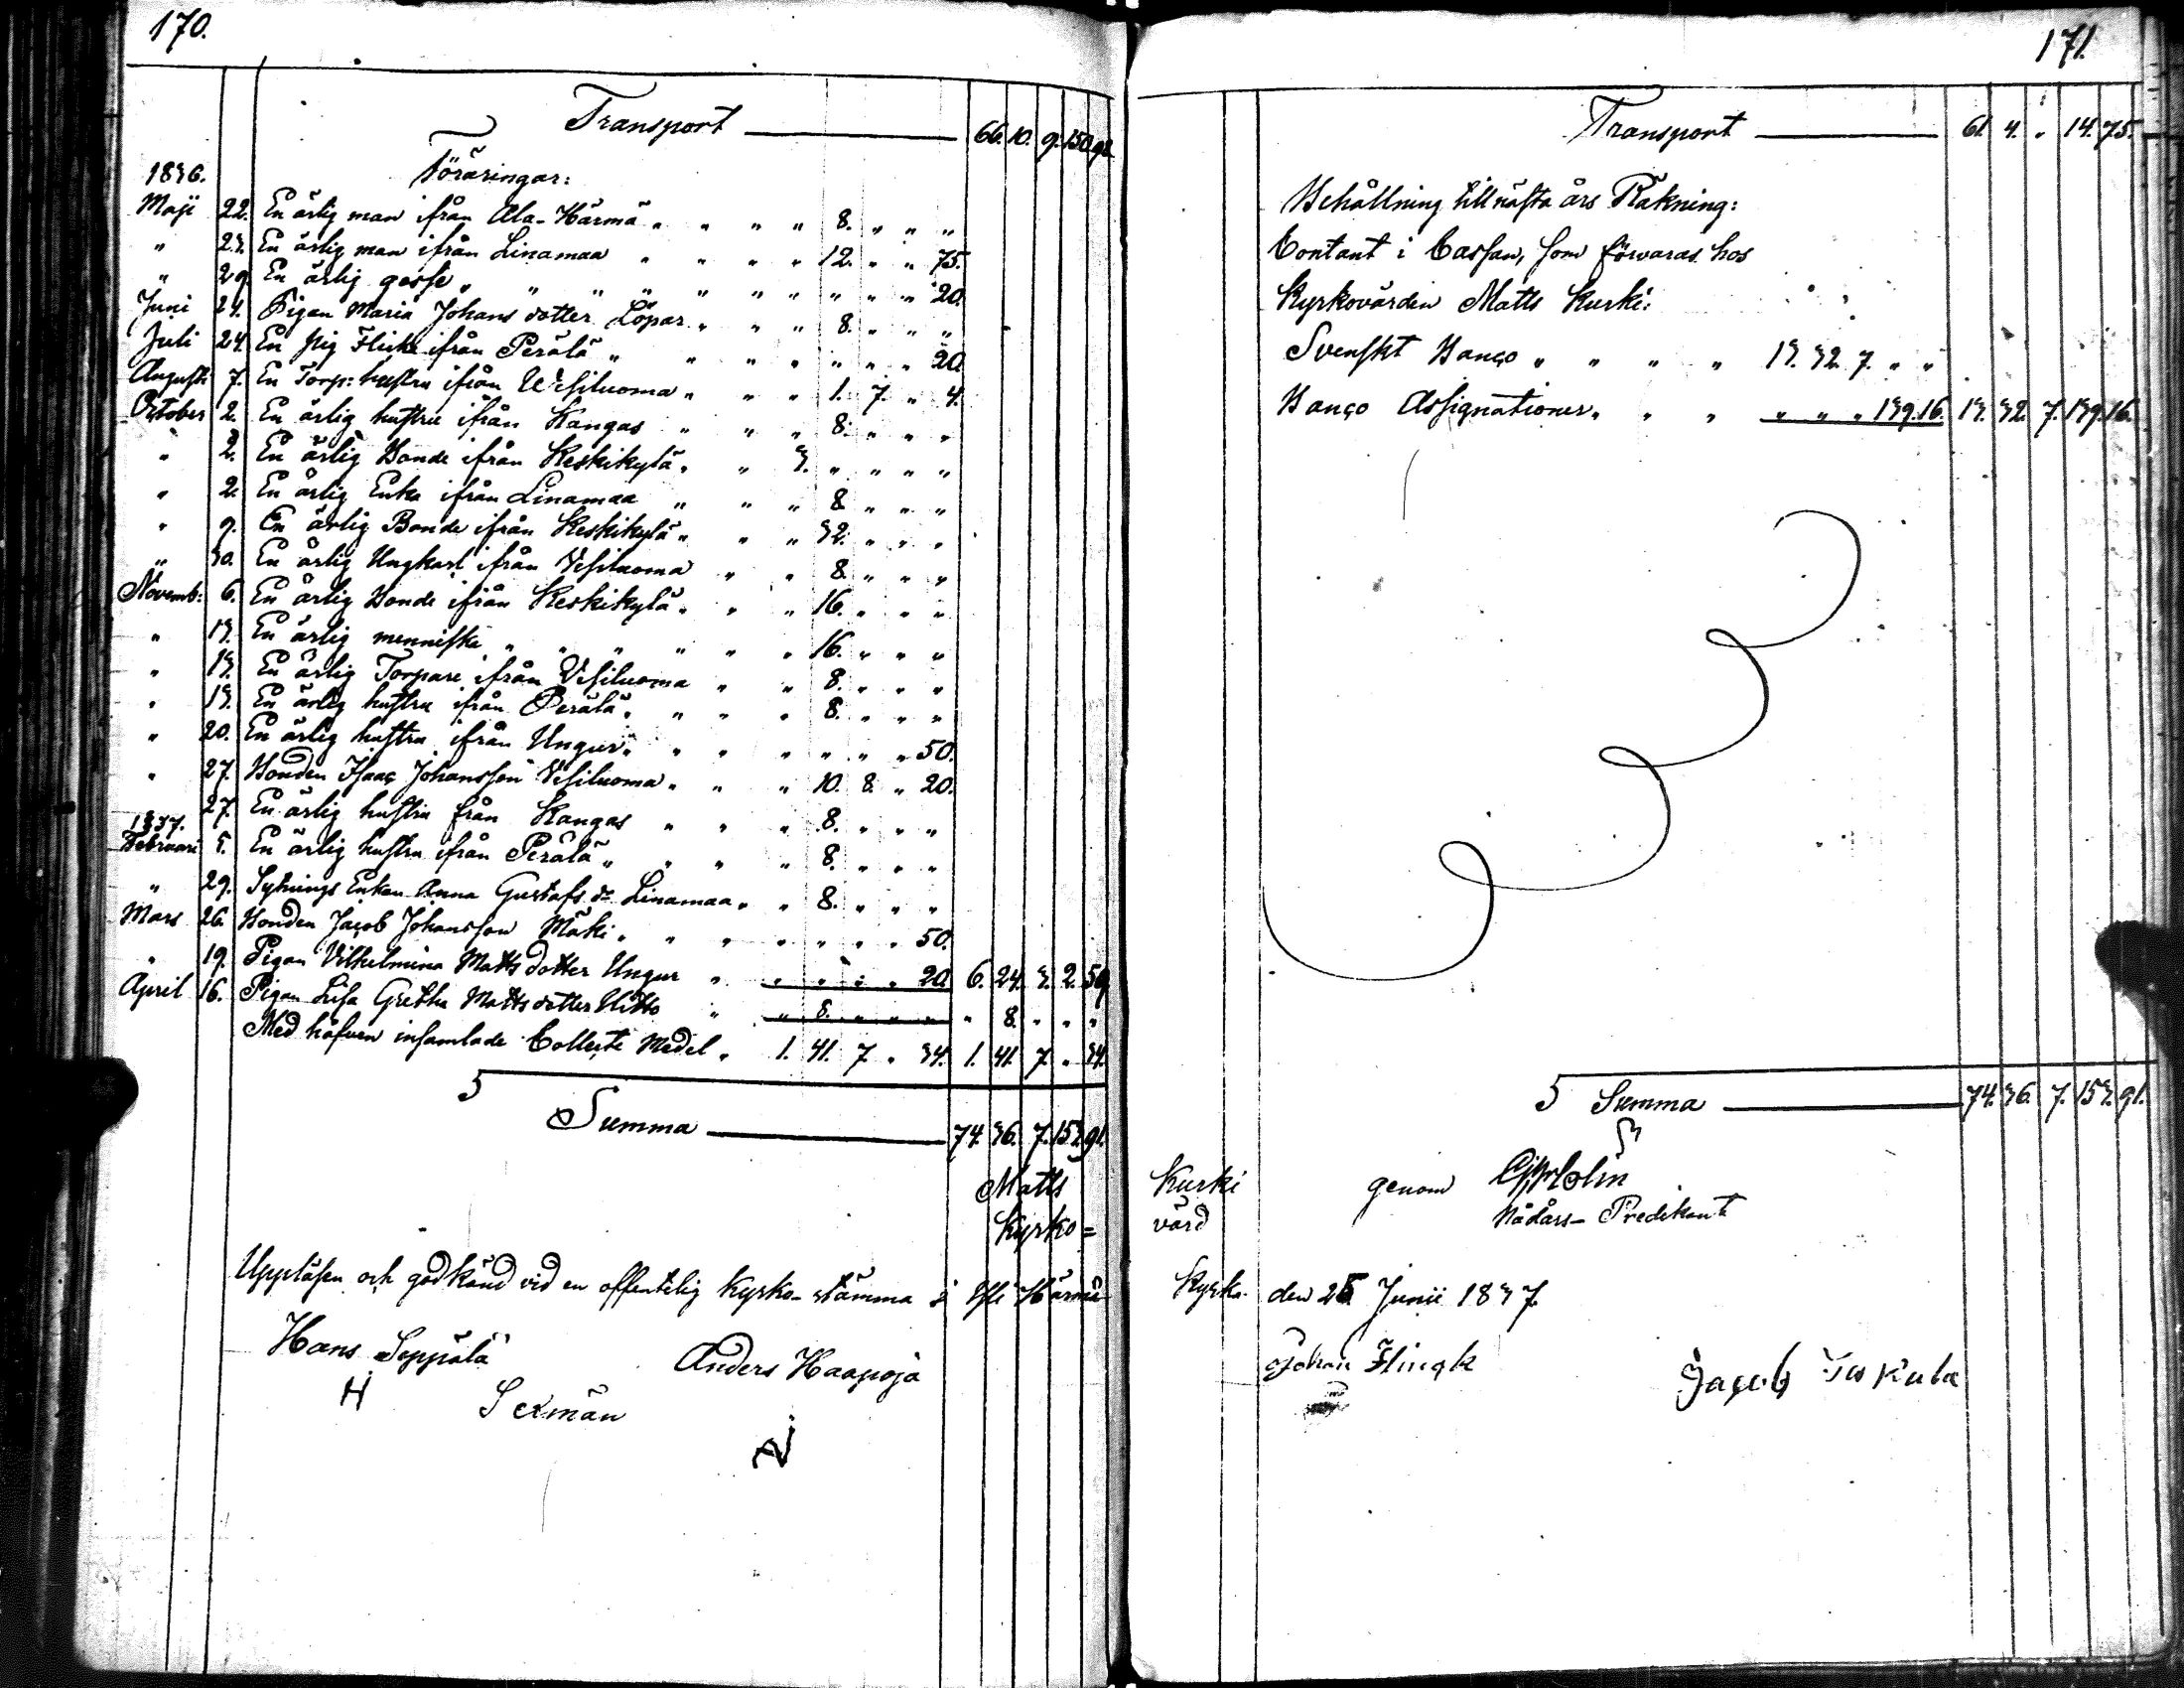 170.
Transport 66. 10. 9. 150. 92
1836. Föräringar:
Maji 22. En ärlig man ifrån Ala-Härmä " " " " 8. " " "
" 23. En ärlig man ifrån Linamaa " " " " 12. " " 75.
" 29. En ärlig gosse " " " " " " " " " " 20.
Juni 24. Pigan Maria Johans dotter Löpar " " " 8. " " "
Juli 24. En pig Flicka ifrån Perälä " " " " " " " 20.
Augusti 7. En Torp: hustru ifrån Wesiluoma " " " 1. 7. " 4.
October 2. En ärlig hustru ifrån Kangas " " " 8. " " "
" 2. En ärlig Bonde ifrån Keskikylä " " 3. " " " "
" 2. En ärlig Enka ifrån Linamaa " " " 8 " " "
" 9. En ärlig Bonde ifrån Keskikylä " " " 32. " " "
" 30. En ärlig Ungkarl ifrån Vesiluoma " " 8. " " "
Novemb: 6. En ärlig Bonde ifrån Keskikylä " " " 16. " " "
" 13. En ärlig menniska " " " " " " 16. " " "
" 13. En ärlig Torpare ifrån Vesiluoma " " 8. " " "
" 13. En ärlig hustru ifrån Perälä " " " " 8. " " "
" 20. En ärlig hustru ifrån Ungur " " " " " " " 50.
" 27. Bonden Isaac Johansson Vesiluoma " " " 10. 8. " 20.
27. En ärlig hustru från Kangas " " " 8. " " "
1837.
Februari 5. En ärlig hustru ifrån Perälä " " " " 8. " " "
" 29. Sytnings Enkan Anna Gustafs dr Linamaa " " 8. " " "
Mars 26. Bonden Jacob Johansson Mäki " " " " " " " 50.
" 19. Pigan Vilhelmina Matts dotter Ungur " " " " " 20. 6. 24. 3. 2. 59
April 16. Pigan Lisa Gretha Mattsdotter Ylitto " " 8. " " " " 8. " " "
Med håfven insamlade Collects Medel " 1. 41. 7. " 34. 1. 41. 7. " 34.
Summa 74. 36. 7. 153. 91.
Matts
Kyrko=
Uppläsen och godkänd vid en offentelig Kyrko-stämma i Yli Härmä
Hans Seppälä Anders Haapoja
H Sexmän
171.
Transport 61. 4. " 14. 75.
Behållning till nästa års Räkning:
Contant i Cassan, som förvaras hos
Kyrkovärden Matts Kurki:
Svenskt Banco " " " " 13. 32. 7. " "
Banco Assignationer " " " " " " 139. 16. 13. 32. 7. 139. 16.
Summa 74. 36. 7. 153. 91.
Kurki genom
värd Nådårs-Predikant
Kyrka den 25 Junii 1837.
Johan Flingk Jacob